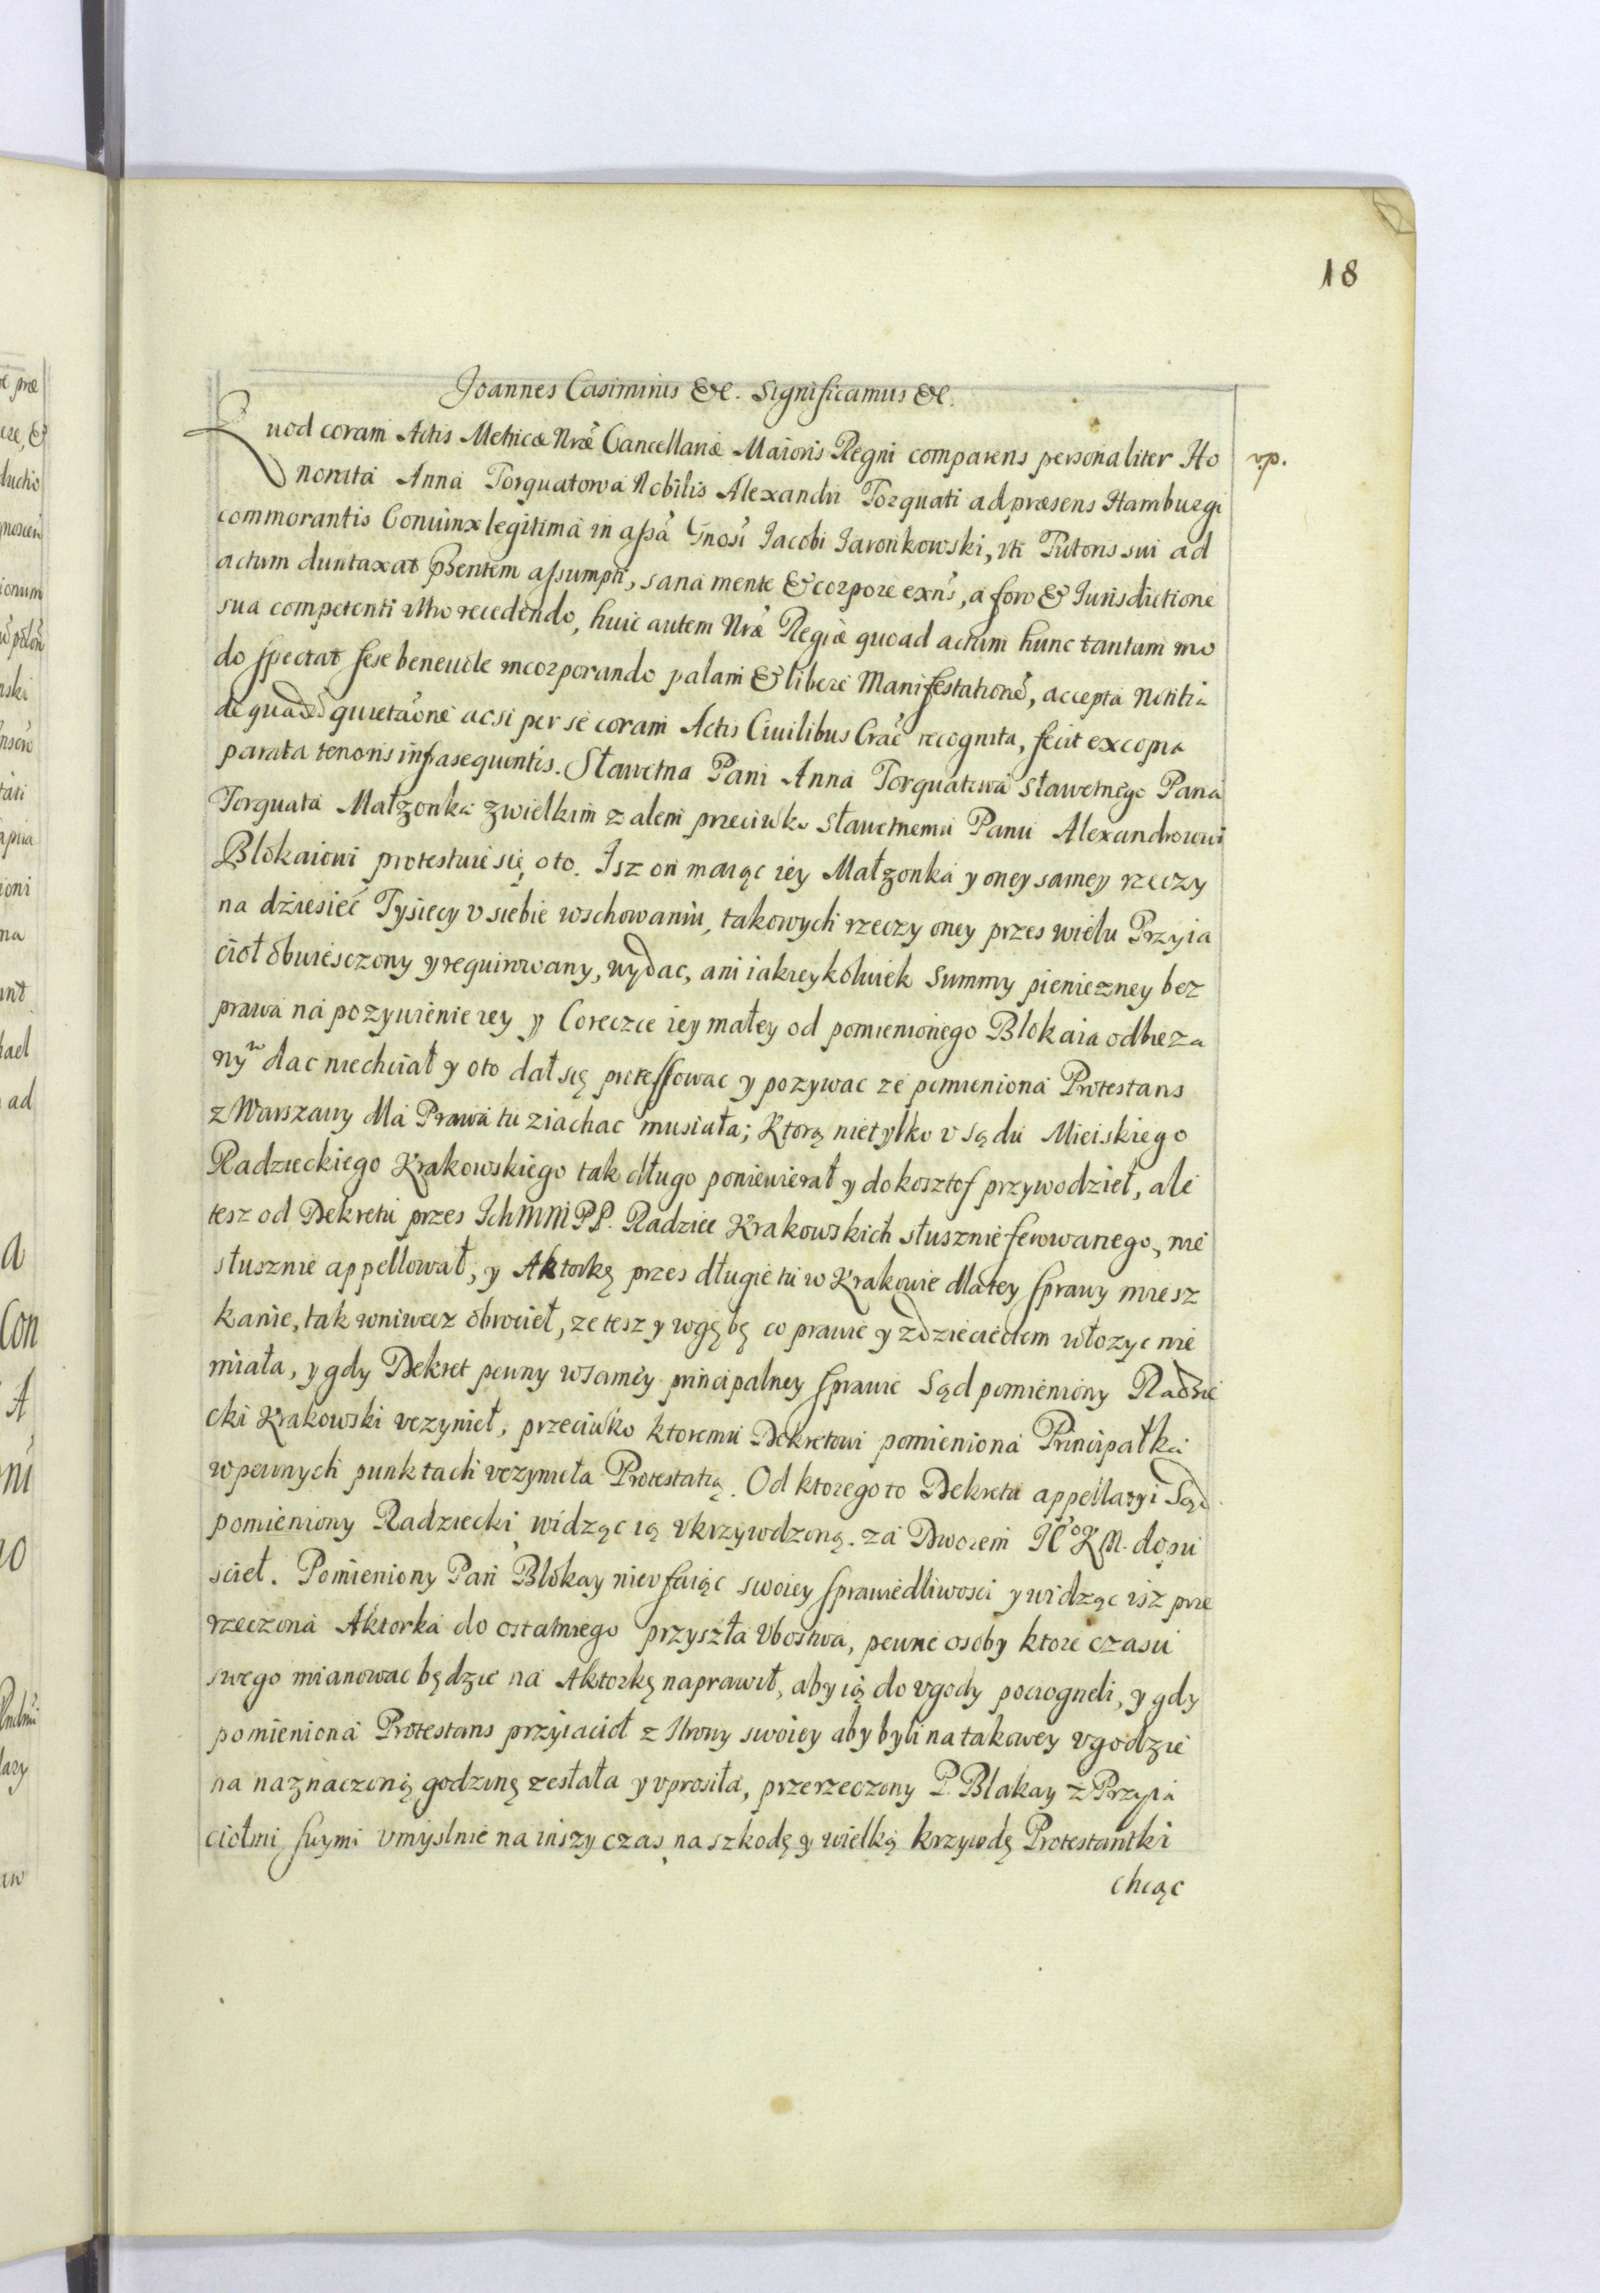 18
Joannes Casimirus &c. Significamus &c.
Quod coram Actis Metricæ Nræ Cancellariæ Maioris Regni comparens personaliter Ho
rp.
norata Anna Torquatowa Nobilis Alexandri Torquati ad præsens Hamburgi
commorantis Coniunx legitima in assa Gnosi Jacobi Jaronkowski, vti Tutoris sui ad
actum duntaxat pntem assumpti, sana mente & corpore exns, a foro & Jurisdictione
sua competenti recedendo, huic autem Nræ Regiæ quoad actum hunc tantum mo
do spectat sese beneuole incorporando palam & libere Manifestatione, accepta Notitia
de quadd quietaone acsi per se coram Actis Ciuilibus Crac recognita, fecit ex copia
parata tenoris infrasequentis. Sławetna Pani Anna Torquatowa Sławetnego Pana
Torquata Małzonka z wielkim zalem przeciwko sławetnemu Panu Alexandrowi
Blokaiowi protestuie się oto. Isz on maiąc iey Małzonka y oney samey rzeczy
na dziesiec Tysiecy v siebie wschowaniu, takowych rzeczy oney przes wielu Przyia
ciol obwiesczony y requirowany, wydac, ani iakieykolwiek Summy pienieżney bez
prawa na pozywienie iey y Coreczce iey małey od pomienionego Blokaia odbieza
nym dac niechciał y oto dał się protestowac y pozywac ze pomieniona Protestans
z Warszawy dla Prawa tu ziachac musiała; Ktorą nietylko v Sądu Mieiskiego
Radzieckiego Krakowskiego tak długo poniewierał y do kosztof przywodzieł, ale
tesz od Dekretu przes Ich MM PP. Radziec Krakowskich słusznie ferowanego, nie
słusznie appellował, y Aktorkę przes długie tu w Krakowie dla tey sprawy miesz
kanie, tak wniwecz obrocieł, ze tesz y wgębę co prawie y zdziecieciem włozyc nie
miała, y gdy Dekret pewny wsamey principalney sprawie Sąd pomieniony Radzie
cki Krakowski vczynieł, przeciwko ktoremu Dekretowi pomieniona Principałka
w pewnych punktach vczyniła Protestatią. Od ktorego to Dekretu appellazyi Sąd
pomieniony Radziecki widząc ią vkrzywdzoną. za Dworem JKo KM. dopu
scieł. Pomieniony Pan Blokay nie vfaiąc swoiey sprawiedliwosci y widząc isz prze
rzeczona Aktorka do ostatniego przyszła Vbostwa, pewne osoby ktore czasu
swego mianowac będzie na Aktorkę naprawił, aby ią do vgody pociogneli, y gdy
pomieniona Protestans przyiacioł z strony swoiey aby byli na takowey vgodzie
na naznaczoną godzinę zesłała y vprosiła, przerzeczony P. Blakay z Przyia
ciołmi swymi vmyslnie na inszy czas na szkodę y wielką krzywdę Protestantki
chcąc